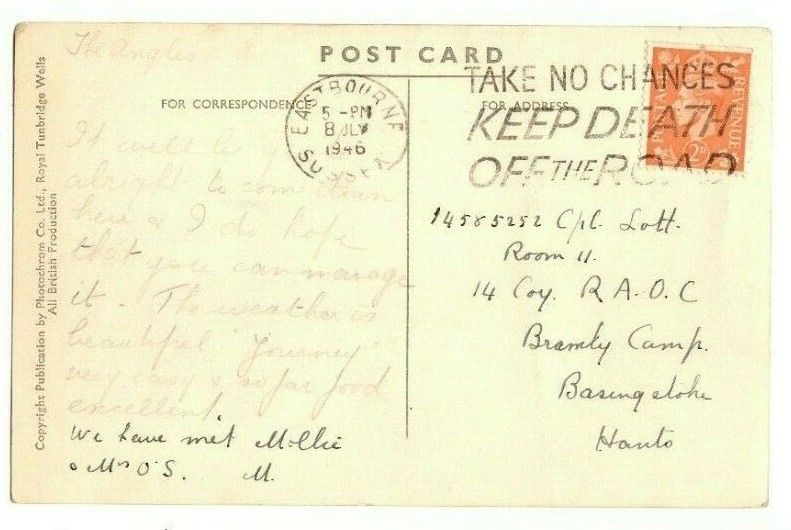 The Angles
POST CARD
FOR CORRESPONDENCE
FOR ADDRESS
EASTBOURNE
5 - PM
8 JLY
1946
SUSSEX
TAKE NO CHANCES
KEEP DEATH
OFF THE ROAD
POSTAGE
REVENUE
2D
It will be
alright to come down
here & I do hope
that you can manage
it. The weather is
beautiful. Journey
very easy & so far food
excellent
We have met Mollie
& Mrs O'S. M.
14585252 Cpl. Lott.
Room 11.
14 Coy. R.A.O.C
Bramley Camp.
Basingstoke
Hants
Copyright Publication by Photochrom Co. Ltd., Royal Tunbridge Wells
All British Production